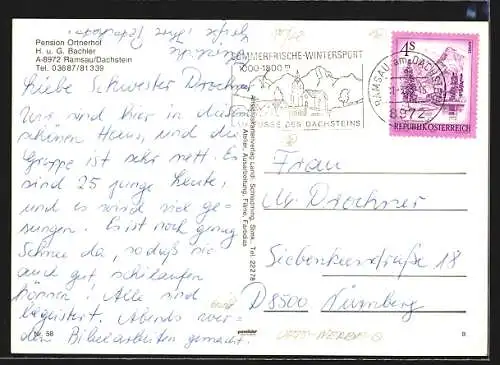 Pension Ortnerhof
H. u. G. Bachler
A-8972 Ramsau/Dachstein
Tel. 03687/81339
Liebe Schwester Drochner
Wir sind hier in diesem
schönen Haus, und die
Gruppe ist sehr nett. Es
sind 25 junge Leute,
und es wird viel ge-
sungen. Es ist noch genug
Schnee da, so daß wir
auch gut skilaufen
können! Alle sind
begeistert. Abends wer-
den Bibelarbeiten gemacht.
Nr. 58
SOMMERFRISCHE-WINTERSPORT
1000-1800 m
AM FUSSE DES DACHSTEINS
RAMSAU am DACHSTEIN
8972
4 S
REPUBLIK ÖSTERREICH
Frau
M. Drochner
Siebenkeesstraße 18
D8500 Nürnberg